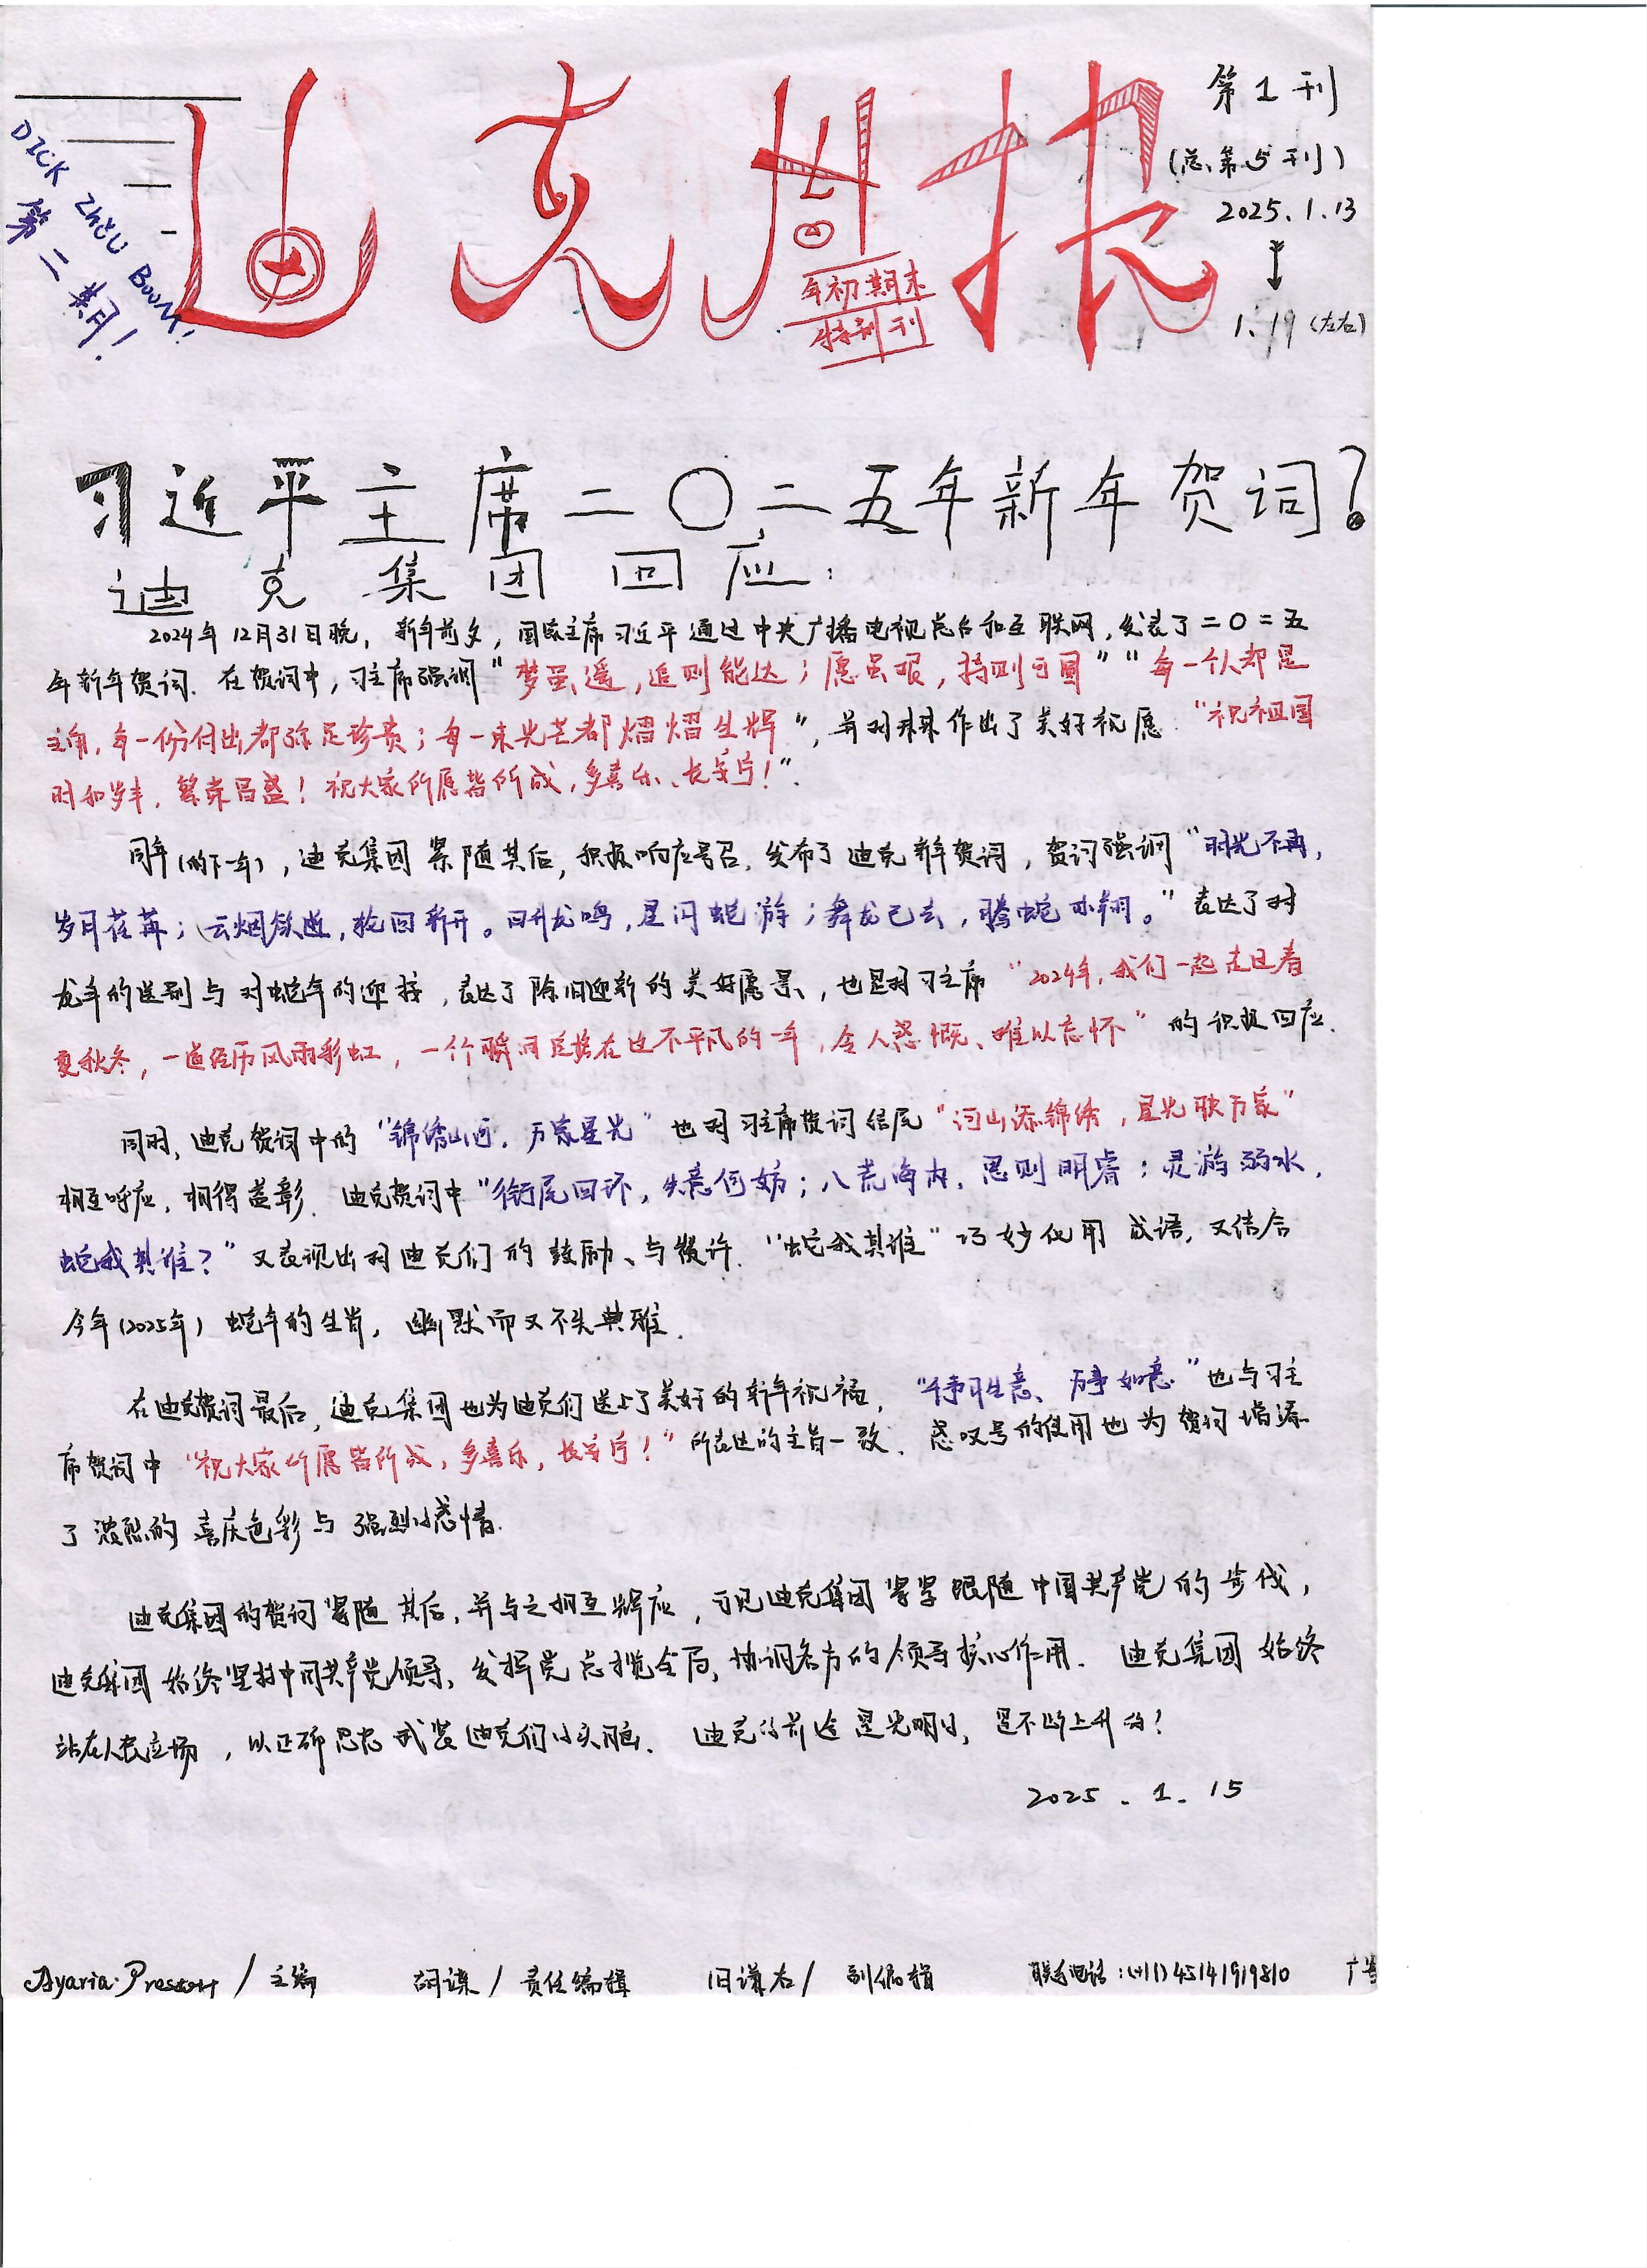 迪克周报
DICK ZHOU BOOM!
第二期!
年初期末
特别刊
第1刊
(总第5刊)
2025.1.13
1.19(左右)
习近平主席二〇二五年新年贺词?
迪克集团回应:
2024年12月31日晚,新年前夕,国家主席习近平通过中央广播电视总台和互联网,发表了二〇二五
年新年贺词.在贺词中,习主席强调"梦虽遥,追则能达;愿虽艰,持则可圆""每一个人都是
主角,每一份付出都弥足珍贵;每一束光芒都熠熠生辉",并对未来作出了美好祝愿"祝祖国
时和岁丰,繁荣昌盛!祝大家所愿皆所成,多喜乐、长安宁!".
同年(的下一年),迪克集团紧随其后,积极响应号召,发布了迪克新年贺词,贺词强调"时光不再,
岁月荏苒;云烟欲逝,轮回新开。日升龙鸣,星闪蛇游;舞龙已去,腾蛇亦翔。"表达了对
龙年的送别与对蛇年的迎接,表达了除旧迎新的美好愿景,也是对习主席"2024年,我们一起走过春
夏秋冬,一道经历风雨彩虹,一个个瞬间定格在这不平凡的一年,令人感慨、难以忘怀"的积极回应.
同时,迪克贺词中的"锦绣山河,万家星光"也对习主席贺词结尾"河山添锦绣,星光映万家"
相互呼应,相得益彰.迪克贺词中"衔尾回环,失意何妨;八荒海内,思则明睿;灵游弱水,
蛇我其谁?"又表现出对迪克们的鼓励、与赞许."蛇我其谁"巧妙化用成语,又结合
今年(2025年)蛇年的生肖,幽默而又不失典雅.
在迪克贺词最后,迪克集团也为迪克们送上了美好的新年祝福,"事事生意、万事如意"也与习主
席贺词中"祝大家所愿皆所成,多喜乐,长安宁!"所表达的主旨一致.感叹号的使用也为贺词增添
了浓烈的喜庆色彩与强烈的感情.
迪克集团的贺词紧随其后,并与之相互辉应,可见迪克集团紧紧跟随中国共产党的步伐,
迪克集团始终坚持中国共产党领导,发挥党总揽全局,协调各方的领导核心作用.迪克集团始终
站在人民立场,以正确思想武装迪克们的头脑.迪克的前途是光明的,是不断上升的!
2025.1.15
Ayaria·Preston/主编 胡谍/责任编辑 旧谦右/副编辑 联系电话: